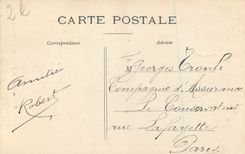 2k
CARTE POSTALE
Correspondance
Adresse
Amitiés
Robert
M Georges
Compagnie d'Assurance
Le Conservateur
rue Lafayette
Paris